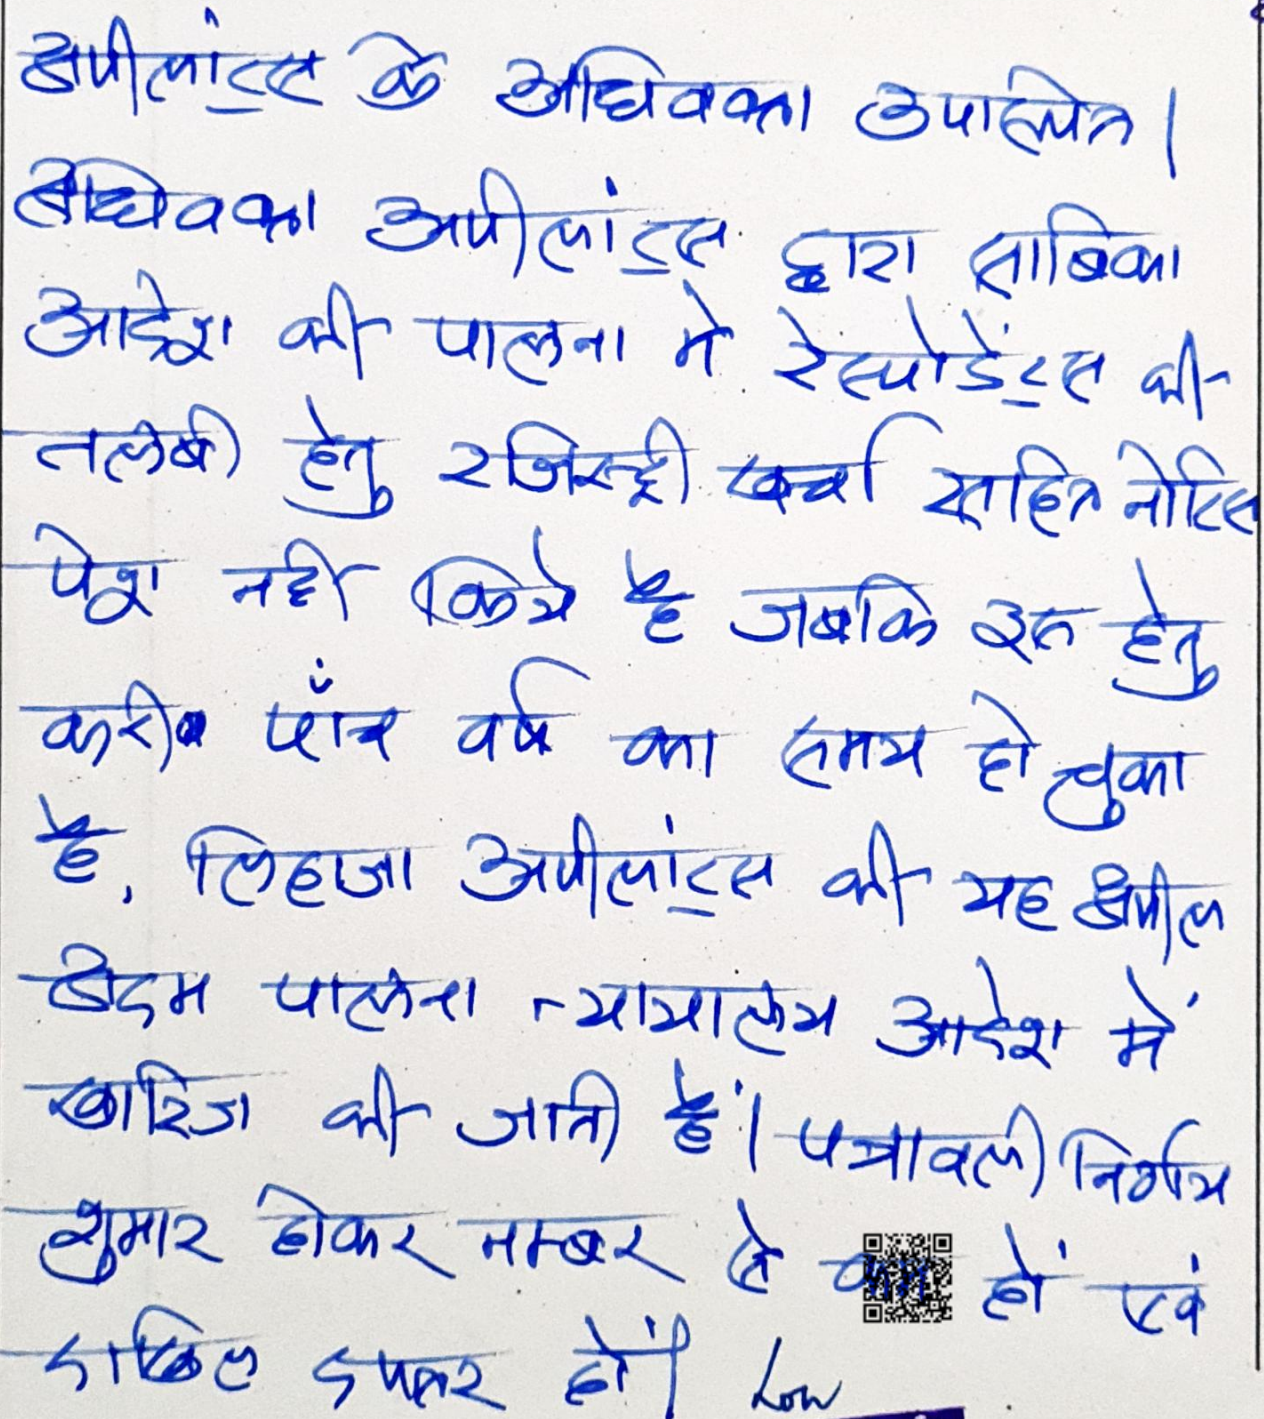 अपीलांट्स के अधिवक्ता उपस्थित।
अधिवक्ता अपीलांट्स द्वारा साबिका
आदेश की पालना मे रेस्पोडेंट्स की
तलबी हेतु रजिस्ट्री खर्चा सहित नोटिस
पेश नही किये है जबकि इस हेतु
करीब पाँच वर्ष का समय हो चुका
है, लिहाजा अपीलांट्स की यह अपील
अदम पालना न्यायालय आदेश में
खारिज की जाती हैं। पत्रावली निर्णय
शुमार होकर नम्बर से कम हों एवं
दाखिल दफ्तर हों।